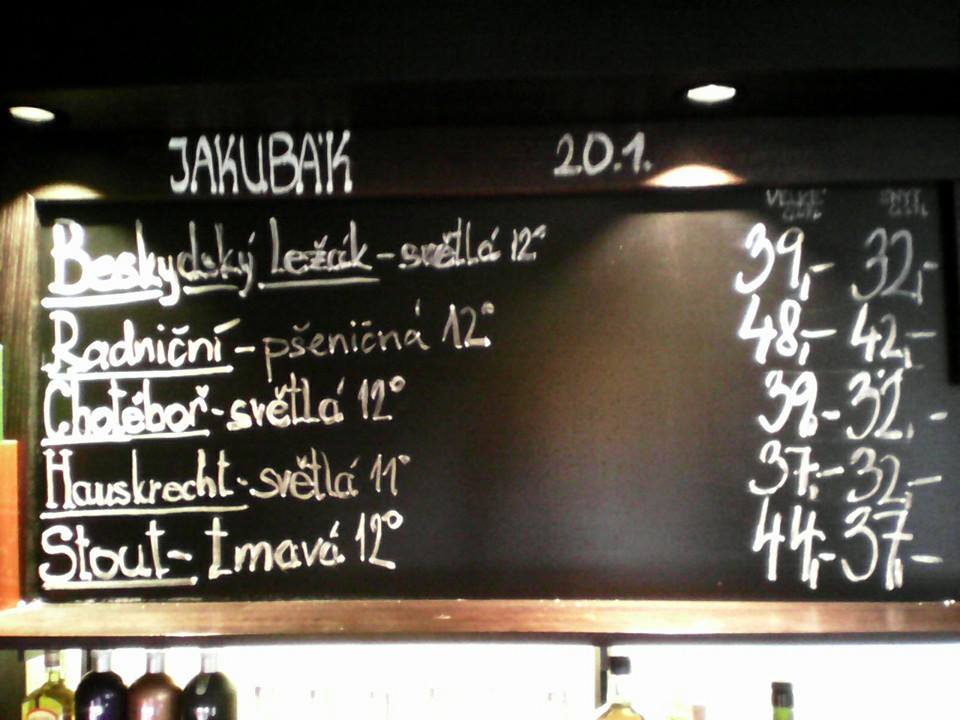 JAKUBÁK 20.1.
VELKÉ
Beskydský ležák - světlá 12° 39,- 32,-
Radniční - pšeničná 12° 48,- 42,-
Chotěboř - světlá 12° 39,- 32,-
Hauskrecht - světlá 11° 37,- 32,-
Stout - tmavá 12° 44,- 37,-